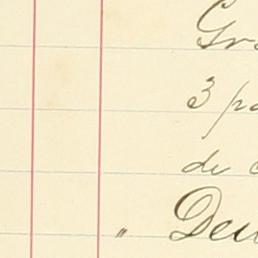 Gr
3 pa
de
" Deu